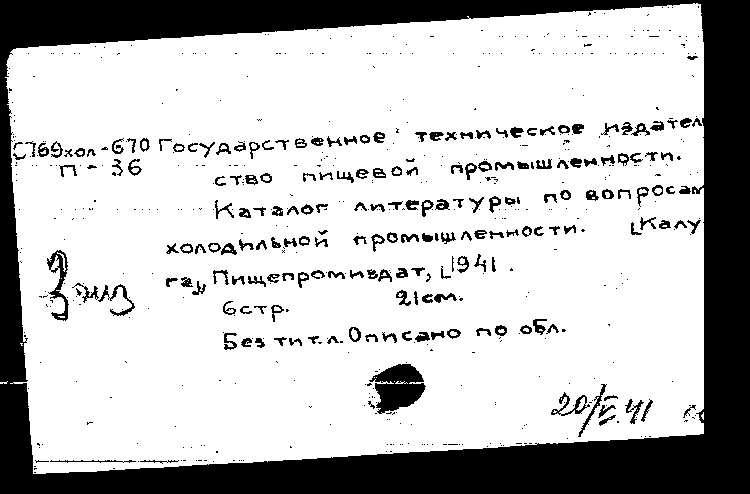 С769хол-670 Государственное техническое издатель
П-36 ство пищевой промышленности.
Каталог литературы по вопросам
холодильной промышленности. [Калу-
га], Пищепромиздат, [1941.
6 стр. 21 см.
Без тит. л. Описано по обл.
3 экз
20/VI.41